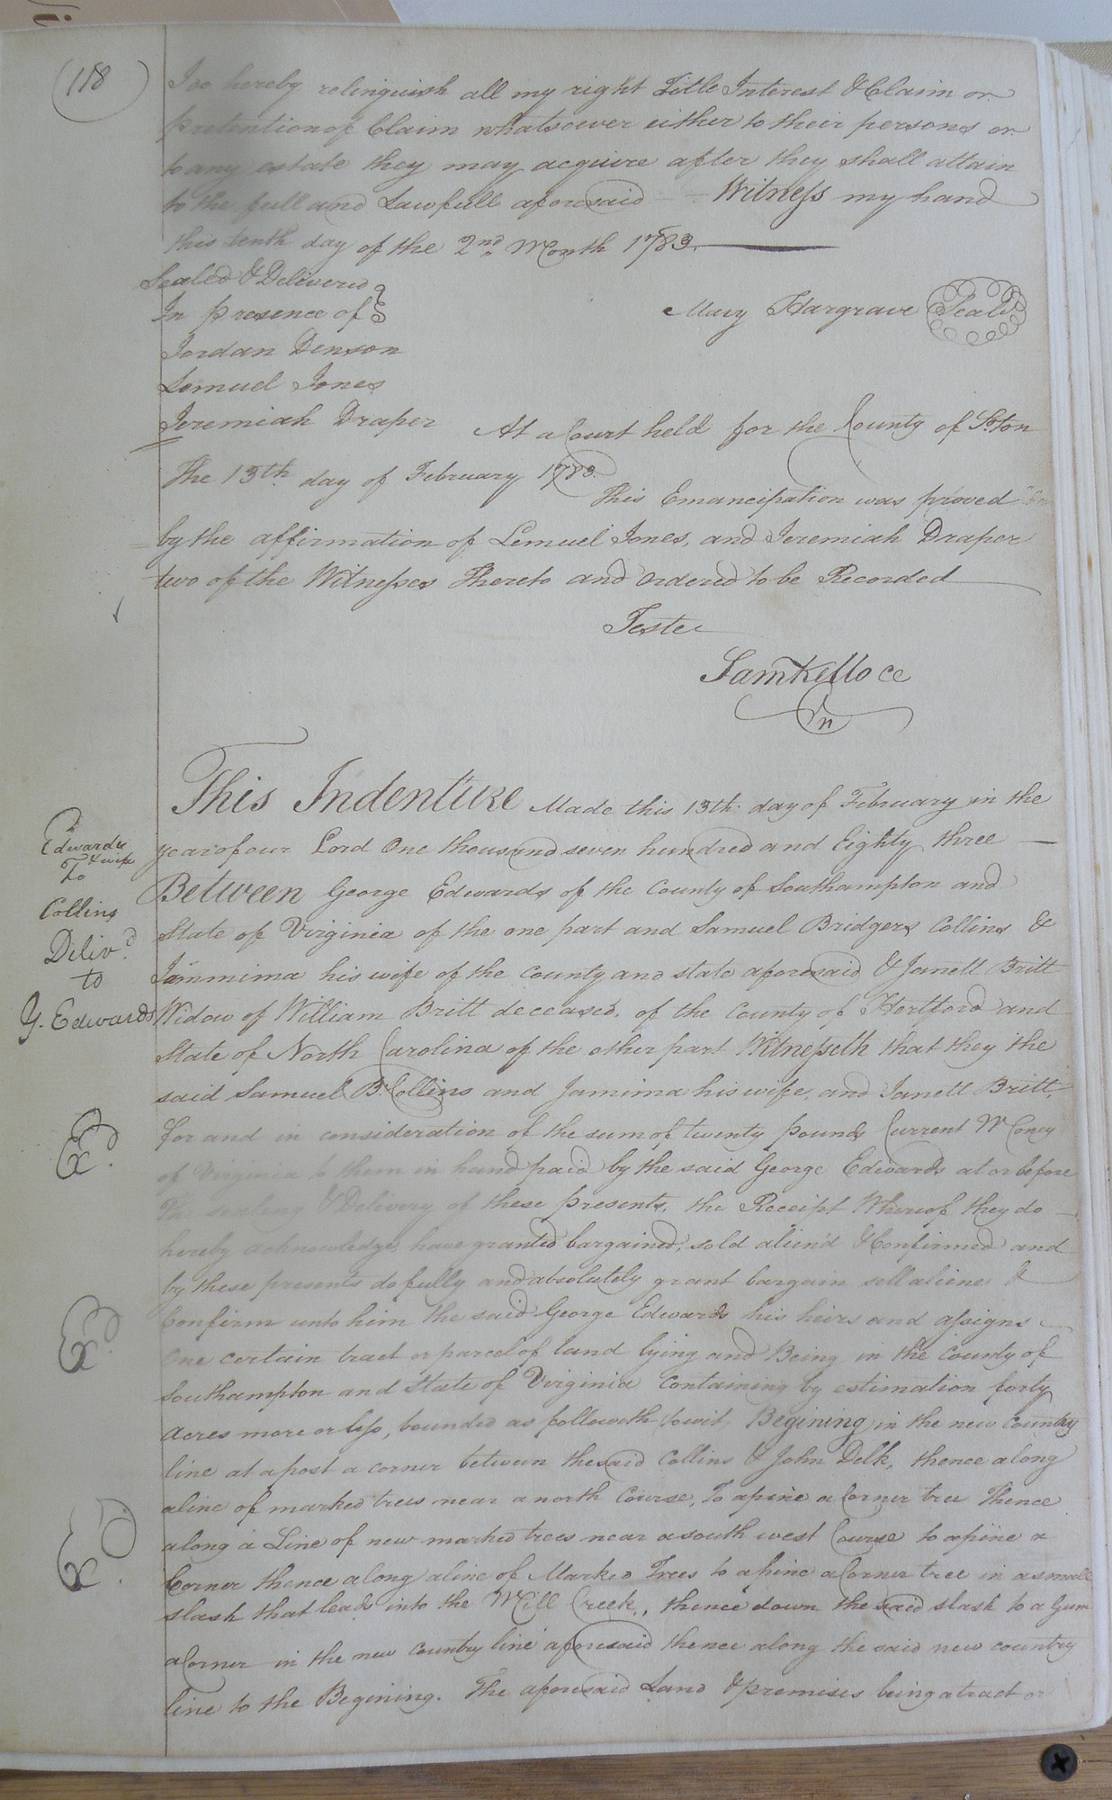 (118)
I do hereby relinquish all my right Title Interest & Claim or
pretention of Claim whatsoever either to their persons or
to any estate they may acquire after they shall attain
to the full and Lawfull aforesaid — Witness my hand
this tenth day of the 2nd Month 1783.
Sealed & Delivered
In presence of
Mary Hargrave (Seal)
Jordan Denson
Lemuel Jones
Jeremiah Draper
At a Court held for the County of So:ton
The 13th day of February 1783
This Emancipation was proved
by the affirmation of Lemuel Jones, and Jeremiah Draper
two of the Witnesses Thereto and ordered to be Recorded
Teste
Sam Kello CC
This Indenture Made this 13th day of February in the
year of our Lord One thousand seven hundred and Eighty three —
Between George Edwards of the County of Southampton and
State of Virginia of the one part and Samuel Bridgers Collins &
Jammima his wife of the County and state aforesaid & Janett Britt
Widow of William Britt deceased, of the County of Hertford and
State of North Carolina of the other part Witnesseth that they the
said Samuel B. Collins and Jamima his wife, and Janett Britt,
for and in consideration of the sum of twenty pounds Current Money
of Virginia to them in hand paid by the said George Edwards at or before
The sealing & Delivery of these presents, the Receipt Whereof they do —
hereby acknowledge, have granted bargained, sold alien'd & Confirmed and
by these presents do fully and absolutely grant bargain sell aliene &
Confirm unto him the said George Edwards his heirs and assigns
One certain tract or parcel of land lying and Being in the County of
Southampton and State of Virginia Containing by estimation forty
Acres more or less, bounded as followeth towit, Begining in the new Country
line at a post a corner between the said Collins & John Delk, thence along
a line of marked trees near a north Course, To a pine a Corner tree Thence
along a Line of new marked trees near a south west Course to a pine a
Corner thence along a line of Marked Trees to a pine a Corner tree in a small
slash that leads into the Mill Creek, thence down the said slash to a Gum
a Corner in the new Country line aforesaid thence along the said new country
line to the Begining. The aforesaid Land & premises being a tract or
Edwards
& wife
To
Collins
Deliv.d
to
Y. Edwards
Ed.
Ed.
Ed.